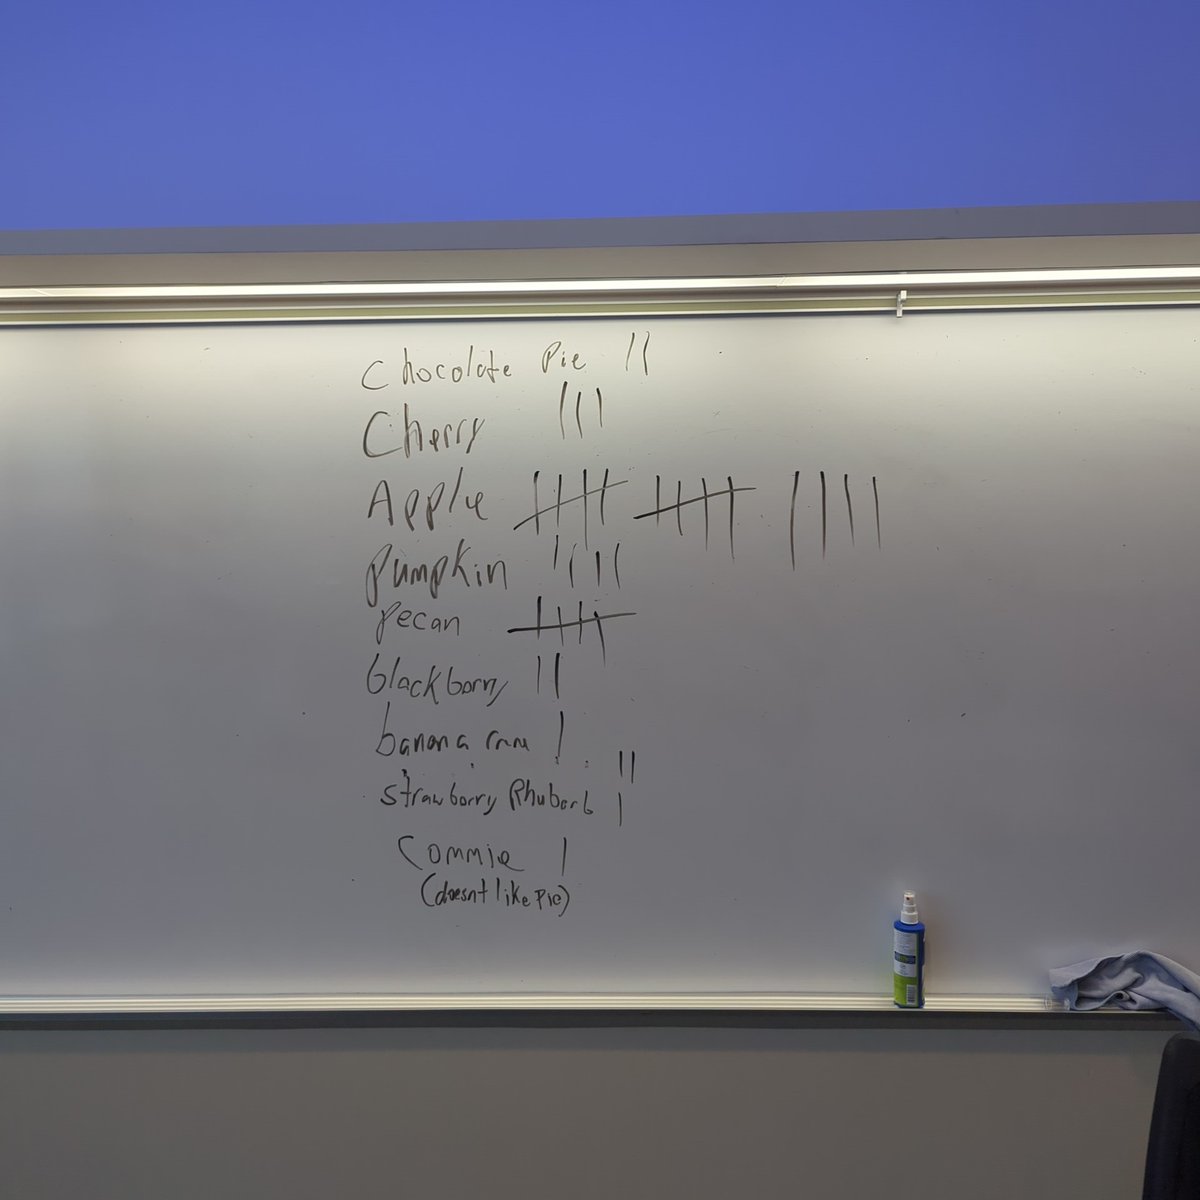 Chocolate Pie ||
Cherry |||
Apple 卌 卌 ||||
Pumpkin ||||
pecan 卌
blackbarry ||
banana |
||
strawbarry Rhubarb |
Commie |
(doesnt like pie)